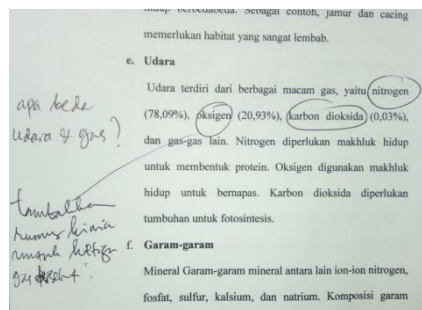 hidup berbedabeda. Sebagai contoh, jamur dan cacing
memerlukan habitat yang sangat lembab.
e. Udara
Udara terdiri dari berbagai macam gas, yaitu nitrogen
(78,09%), oksigen (20,93%), karbon dioksida (0,03%),
dan gas-gas lain. Nitrogen diperlukan makhluk hidup
untuk membentuk protein. Oksigen digunakan makhluk
hidup untuk bernapas. Karbon dioksida diperlukan
tumbuhan untuk fotosintesis.
f. Garam-garam
Mineral Garam-garam mineral antara lain ion-ion nitrogen,
fosfat, sulfur, kalsium, dan natrium. Komposisi garam
apa beda
udara & gas?
tambahkan
rumus kimia
untuk ketiga
gas tersebut.